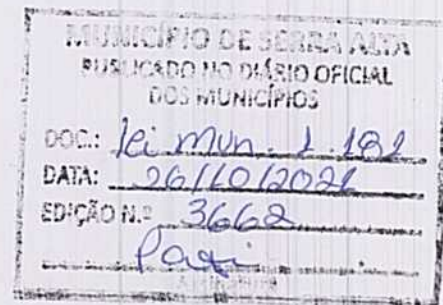 MUNICÍPIO DE SERRA ALTA
PUBLICADO NO DIÁRIO OFICIAL
DOS MUNICÍPIOS
DOC.: Lei Mun. 1.191
DATA: 26/10/2021
EDIÇÃO N.º 3662